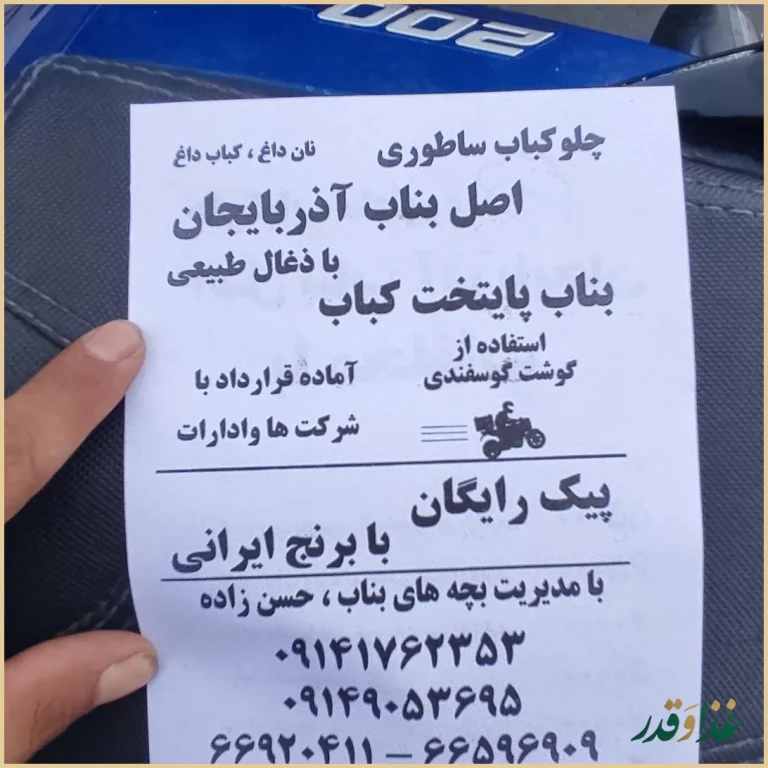 200
چلوکباب ساطوری
نان داغ ، کباب داغ
اصل بناب آذربایجان
با ذغال طبیعی
بناب پایتخت کباب
استفاده از
گوشت گوسفندی
آماده قرارداد با
شرکت ها وادارات
پیک رایگان
با برنج ایرانی
با مدیریت بچه های بناب ، حسن زاده
۰۹۱۴۱۷۶۲۳۵۳
۰۹۱۴۹۰۵۳۶۹۵
۶۶۹۲۰۴۱۱ – ۶۶۵۹۶۹۰۹
غذا و قدر